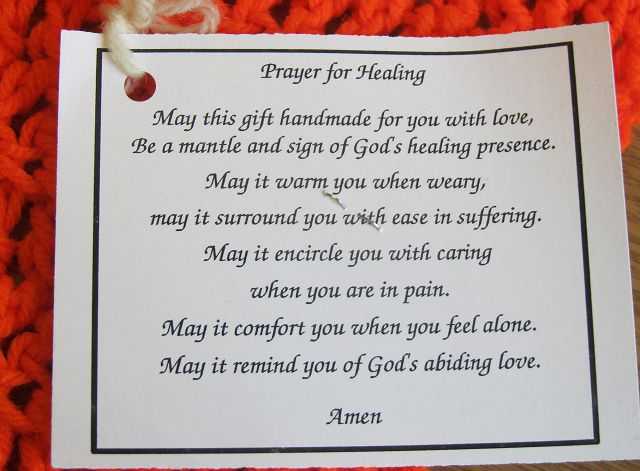 Prayer for Healing
May this gift handmade for you with love,
Be a mantle and sign of God's healing presence.
May it warm you when weary,
may it surround you with ease in suffering.
May it encircle you with caring
when you are in pain.
May it comfort you when you feel alone.
May it remind you of God's abiding love.
Amen